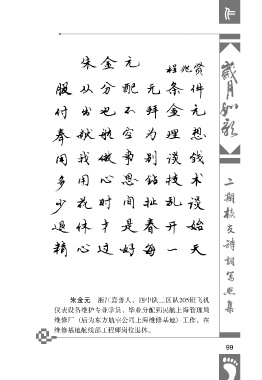 朱金元
程兆贤
服从分配无条件
付出也不拜金元
奉献航空为理想
图我做事别谈钱
多用心思钻技术
少花时间扯乱谈
退休才是春开始
精心过好每一天
朱金元 浙江嘉善人，四中队二区队205班飞机
仪表设备维护专业学员，毕业分配到民航上海管理局
维修厂（后为东方航空公司上海维修基地）工作，在
维修基地航线部工程师岗位退休。
岁月如歌
二期校友诗词写照集
99